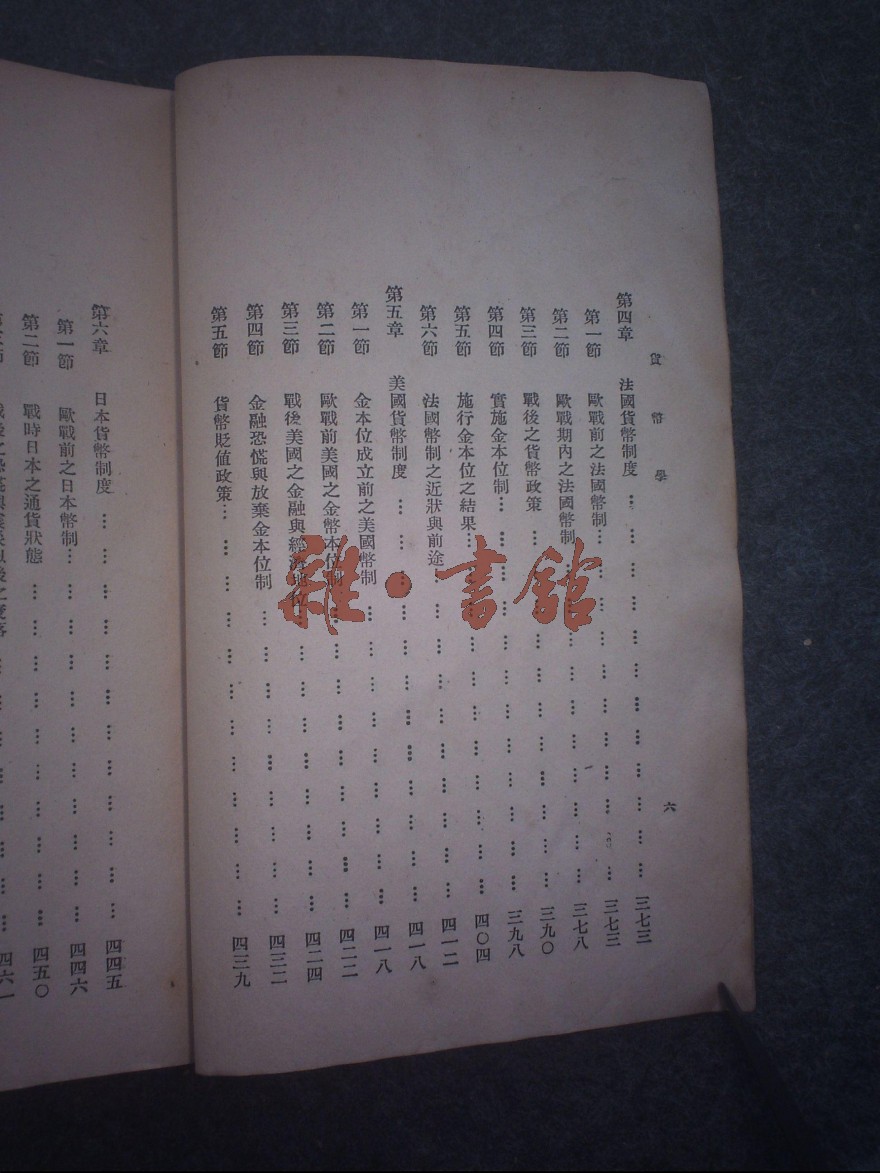 貨幣學 六
第四章 法國貨幣制度 … … … … … … … … … … … … … 三七三
第一節 歐戰前之法國幣制… … … … … … … … … … … 三七三
第二節 歐戰期內之法國幣制 … … … … … … … … … … 三七八
第三節 戰後之貨幣政策 … … … … … … … … … … … 三九〇
第四節 實施金本位制… … … … … … … … … … … … 三九八
第五節 施行金本位之結果… … … … … … … … … … … 四〇四
第六節 法國幣制之近狀與前途 … … … … … … … … … 四一二
第五章 美國貨幣制度 … … … … … … … … … … … … … 四一八
第一節 金本位成立前之美國幣制 … … … … … … … … … 四一八
第二節 歐戰前美國之金幣本位制 … … … … … … … … … 四二二
第三節 戰後美國之金融與經濟地位 … … … … … … … … 四二四
第四節 金融恐慌與放棄金本位制 … … … … … … … … … 四三二
第五節 貨幣貶值政策… … … … … … … … … … … … 四三九
第六章 日本貨幣制度 … … … … … … … … … … … … … 四四五
第一節 歐戰前之日本幣制… … … … … … … … … … … 四四六
第二節 戰時日本之通貨狀態 … … … … … … … … … … 四五〇
雜·書館